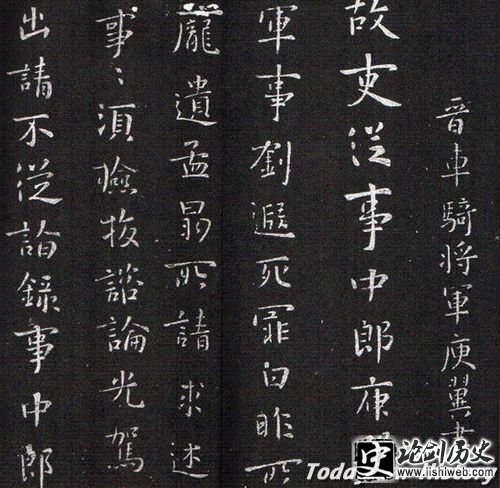 晉車騎將軍庾翼書
故吏從事中郎庾
軍事劉遐死罪白昨所
龐遺孟昜所請求述
事〻須撿挍諮論光駕
出請不從諭錄事中郎
Toda
论剑历史
www.lishiweb.com